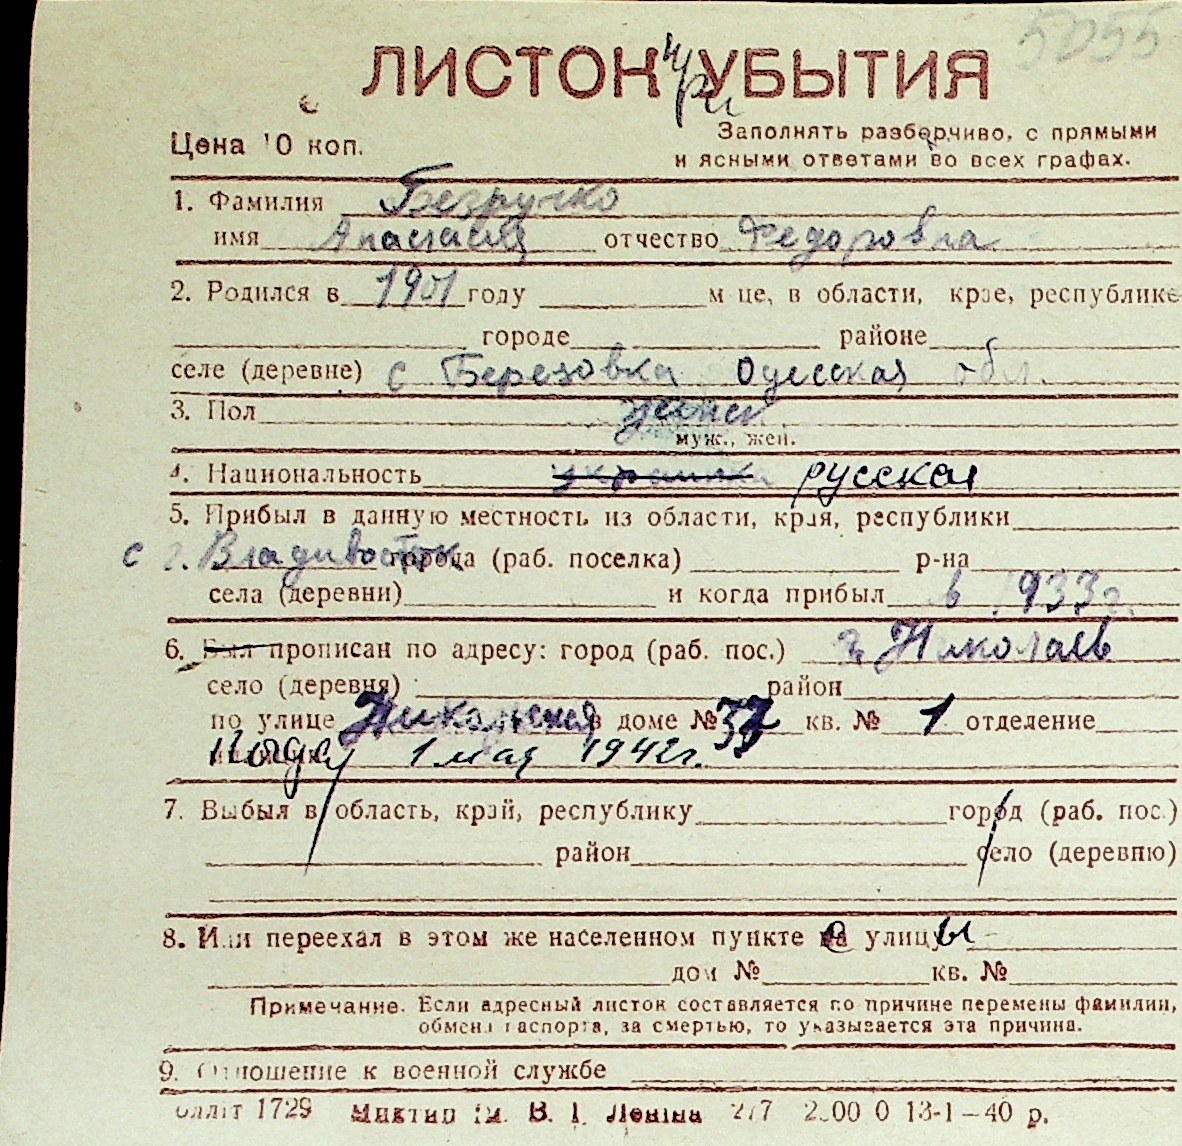 5055
ЛИСТОК при УБЫТИЯ
Цена 10 коп.
Заполнять разборчиво, с прямыми
и ясными ответами во всех графах.
1. Фамилия Безручко
имя Анастасия отчество Федоровна
2. Родился в 1901 году м-це, в области, крае, республике
городе районе
селе (деревне) с Березовка Одесская обл.
3. Пол женск
муж., жен.
4. Национальность украинка русская
5. Прибыл в данную местность из области, края, республики
с г. Владивосток города (раб. поселка) р-на
села (деревни) и когда прибыл в 1933 г.
6. Был прописан по адресу: город (раб. пос.) г. Николаев
село (деревня) район
по улице Никольская в доме № 37 кв. № 1 отделение
когда 1 мая 1942 г.
7. Выбыл в область, край, республику город (раб. пос.)
район село (деревню)
8. Или переехал в этом же населенном пункте с улицы
дом № кв. №
Примечание. Если адресный листок составляется по причине перемены фамилии,
обмена паспорта, за смертью, то указывается эта причина.
9. Отношение к военной службе
1729 Миктип ім. В. І. Леніна 2/7 2.00 0 13-1-40 р.